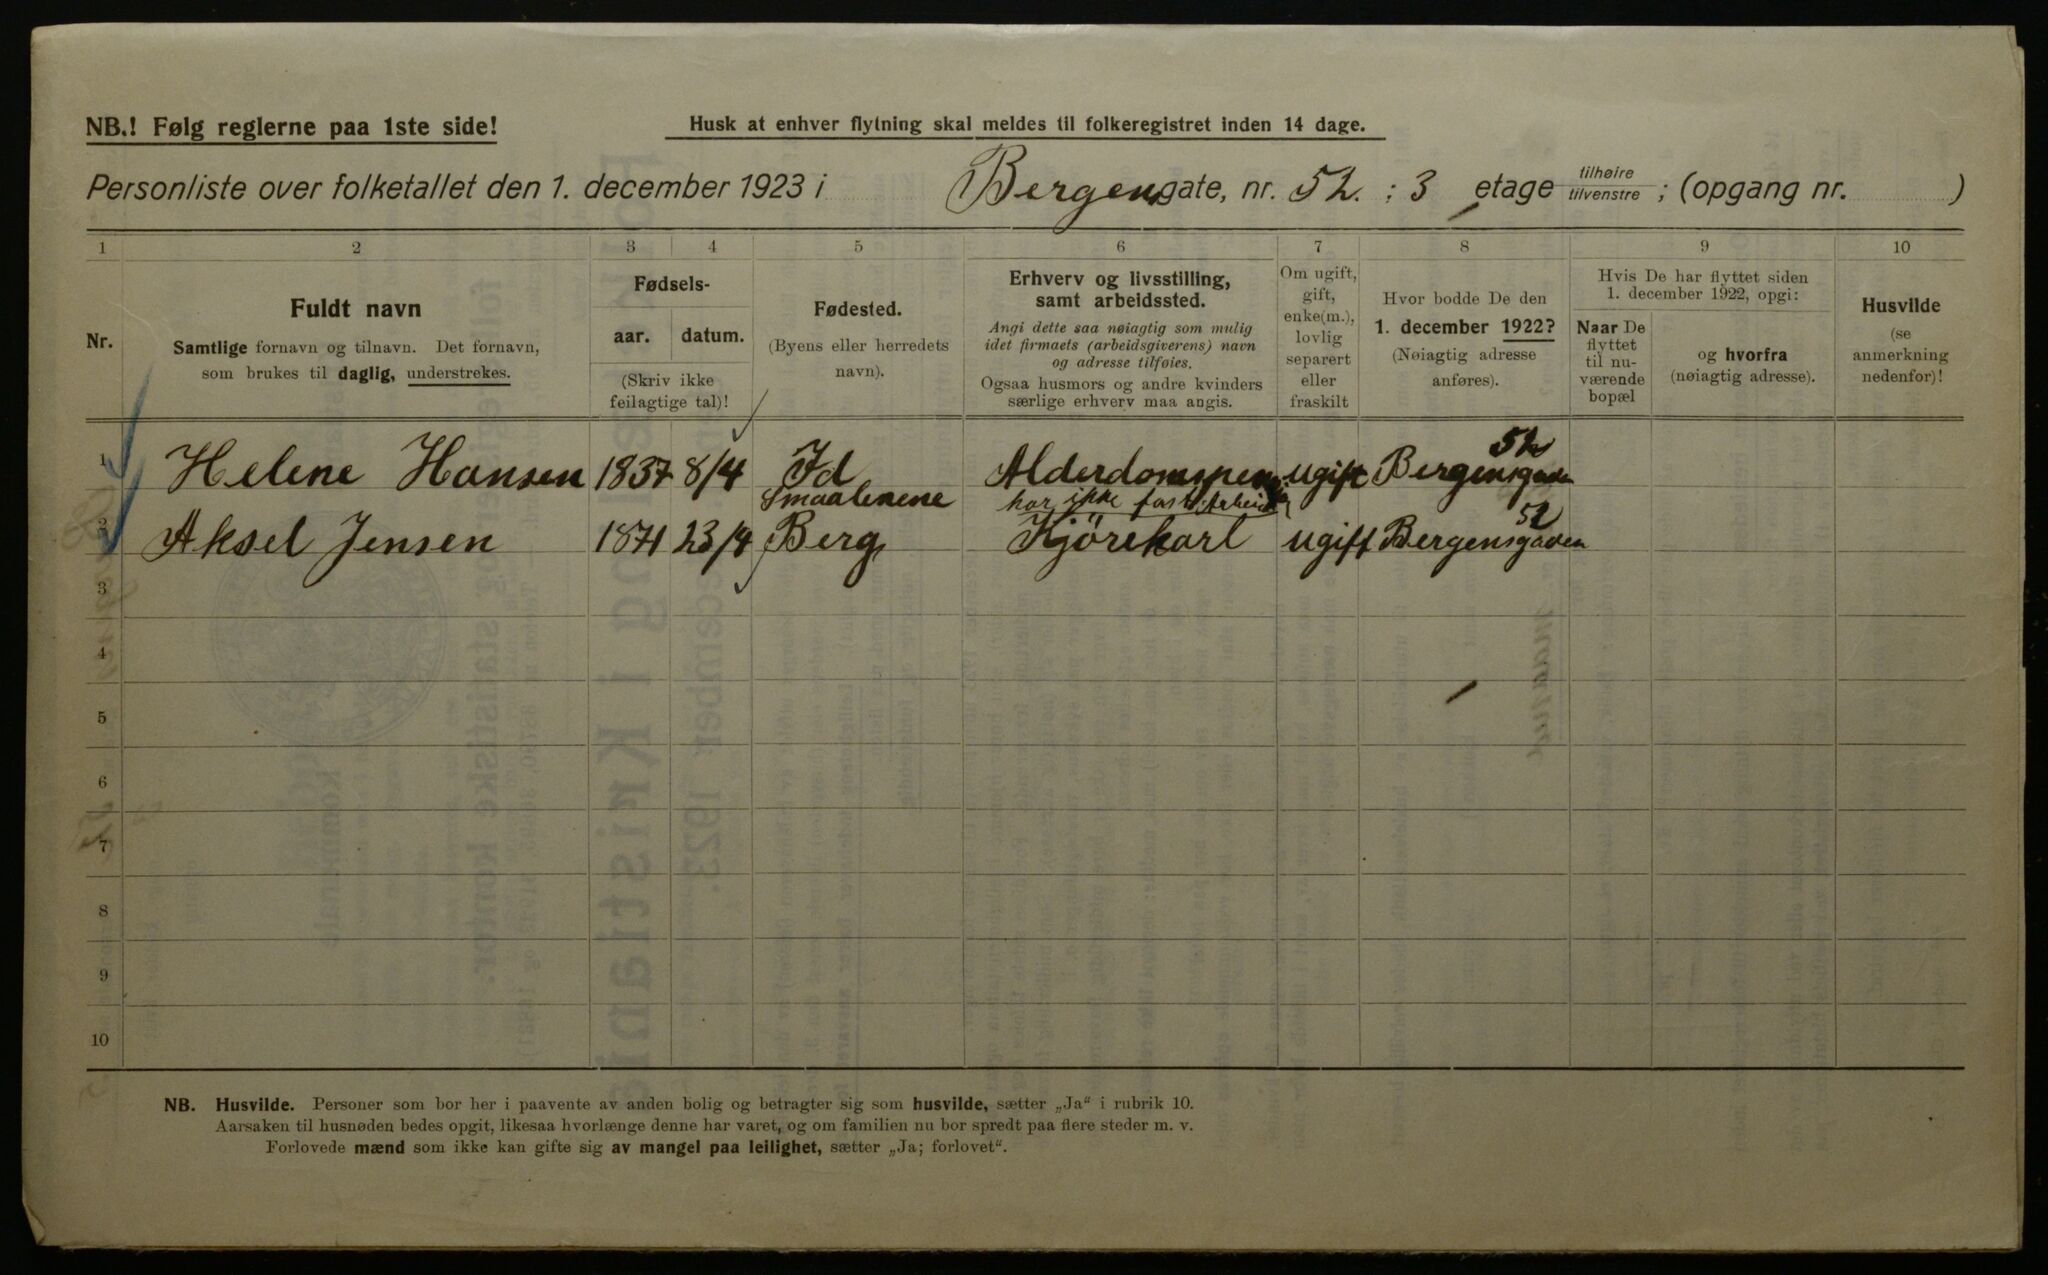 NB.! Følg reglerne paa 1ste side!
Husk at enhver flytning skal meldes til folkeregistret inden 14 dage.
Personliste over folketallet den 1. december 1923 i Bergensgate, nr. 52. ; 3 etage tilhøire tilvenstre ; (opgang nr. )
1 2 3 4 5 6 7 8 9 10
Nr.
Fuldt navn
Samtlige fornavn og tilnavn. Det fornavn,
som brukes til daglig, understrekes.
Fødsels-
aar. datum.
(Skriv ikke
feilagtige tal)!
Fødested.
(Byens eller herredets
navn).
Erhverv og livsstilling,
samt arbeidssted.
Angi dette saa nøiagtig som mulig
idet firmaets (arbeidsgiverens) navn
og adresse tilføies.
Ogsaa husmors og andre kvinders
særlige erhverv maa angis.
Om ugift,
gift,
enke(m.),
lovlig
separert
eller
fraskilt
Hvor bodde De den
1. december 1922?
(Nøiagtig adresse
anføres).
Hvis De har flyttet siden
1. december 1922, opgi:
Naar De
flyttet
til nu-
værende
bopæl
og hvorfra
(nøiagtig adresse).
Husvilde
(se
anmerkning
nedenfor)!
1 Helene Hansen 1837 8/4 Id Smaalenene ugift Bergensgaden 52
har ikke fast Arbeide
2 Aksel Jensen 1871 23/4 Berg Kjörekarl ugift Bergensgaden 52
3
4
5
6
7
8
9
10
NB. Husvilde. Personer som bor her i paavente av anden bolig og betragter sig som husvilde, sætter „Ja“ i rubrik 10.
Aarsaken til husnøden bedes opgit, likesaa hvorlænge denne har varet, og om familien nu bor spredt paa flere steder m. v.
Forlovede mænd som ikke kan gifte sig av mangel paa leilighet, sætter „Ja; forlovet“.